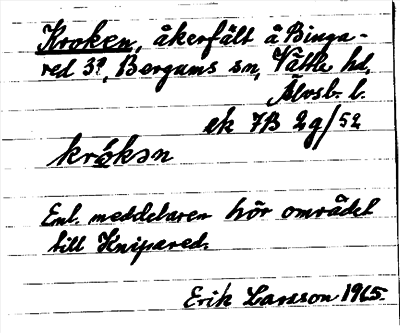 Kroken, åkerfält å Binga-
red 3?, Bergums sn, Vättle hd,
Älvsb. l.
ek 7B 2g/52
krω̂kən
Enl. meddelaren hör området
till Knipared.
Erik Larsson 1965.